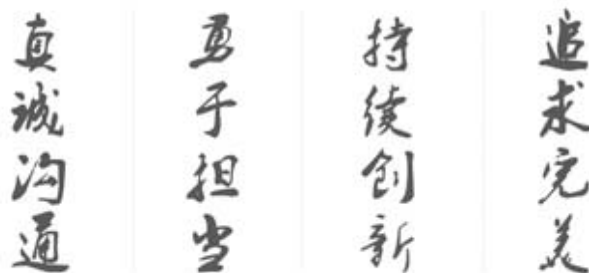 真诚沟通
勇于担当
持续创新
追求完美